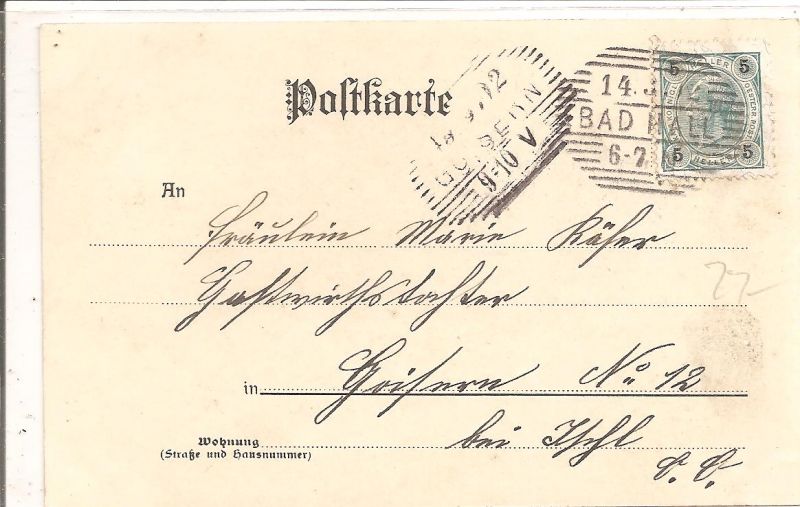 Postkarte
02
GOISERN
9-10 V
14.
BAD HALL
6-7
5 HELLER 5
5 HELLER 5
An
Fräulein Marie Käfer
Gastwirthstochter
in Goisern No 12
Wohnung
(Straße und Hausnummer)
bei Ischl
O. Ö.
22